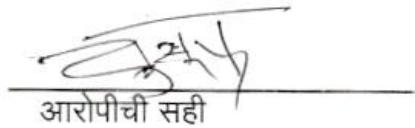 आरोपीची सही